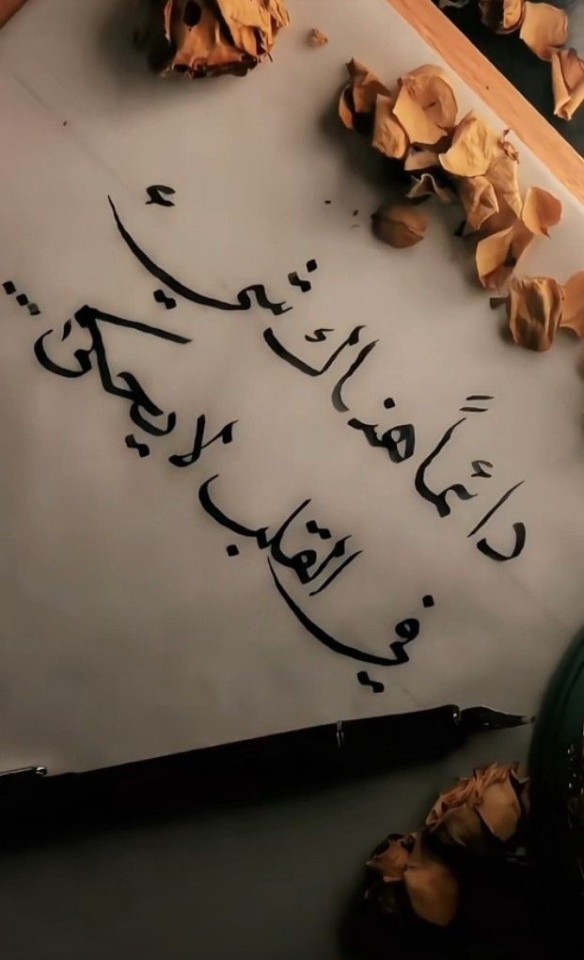 دائمًا هناك شيئ
في القلب لا يحكىَ...